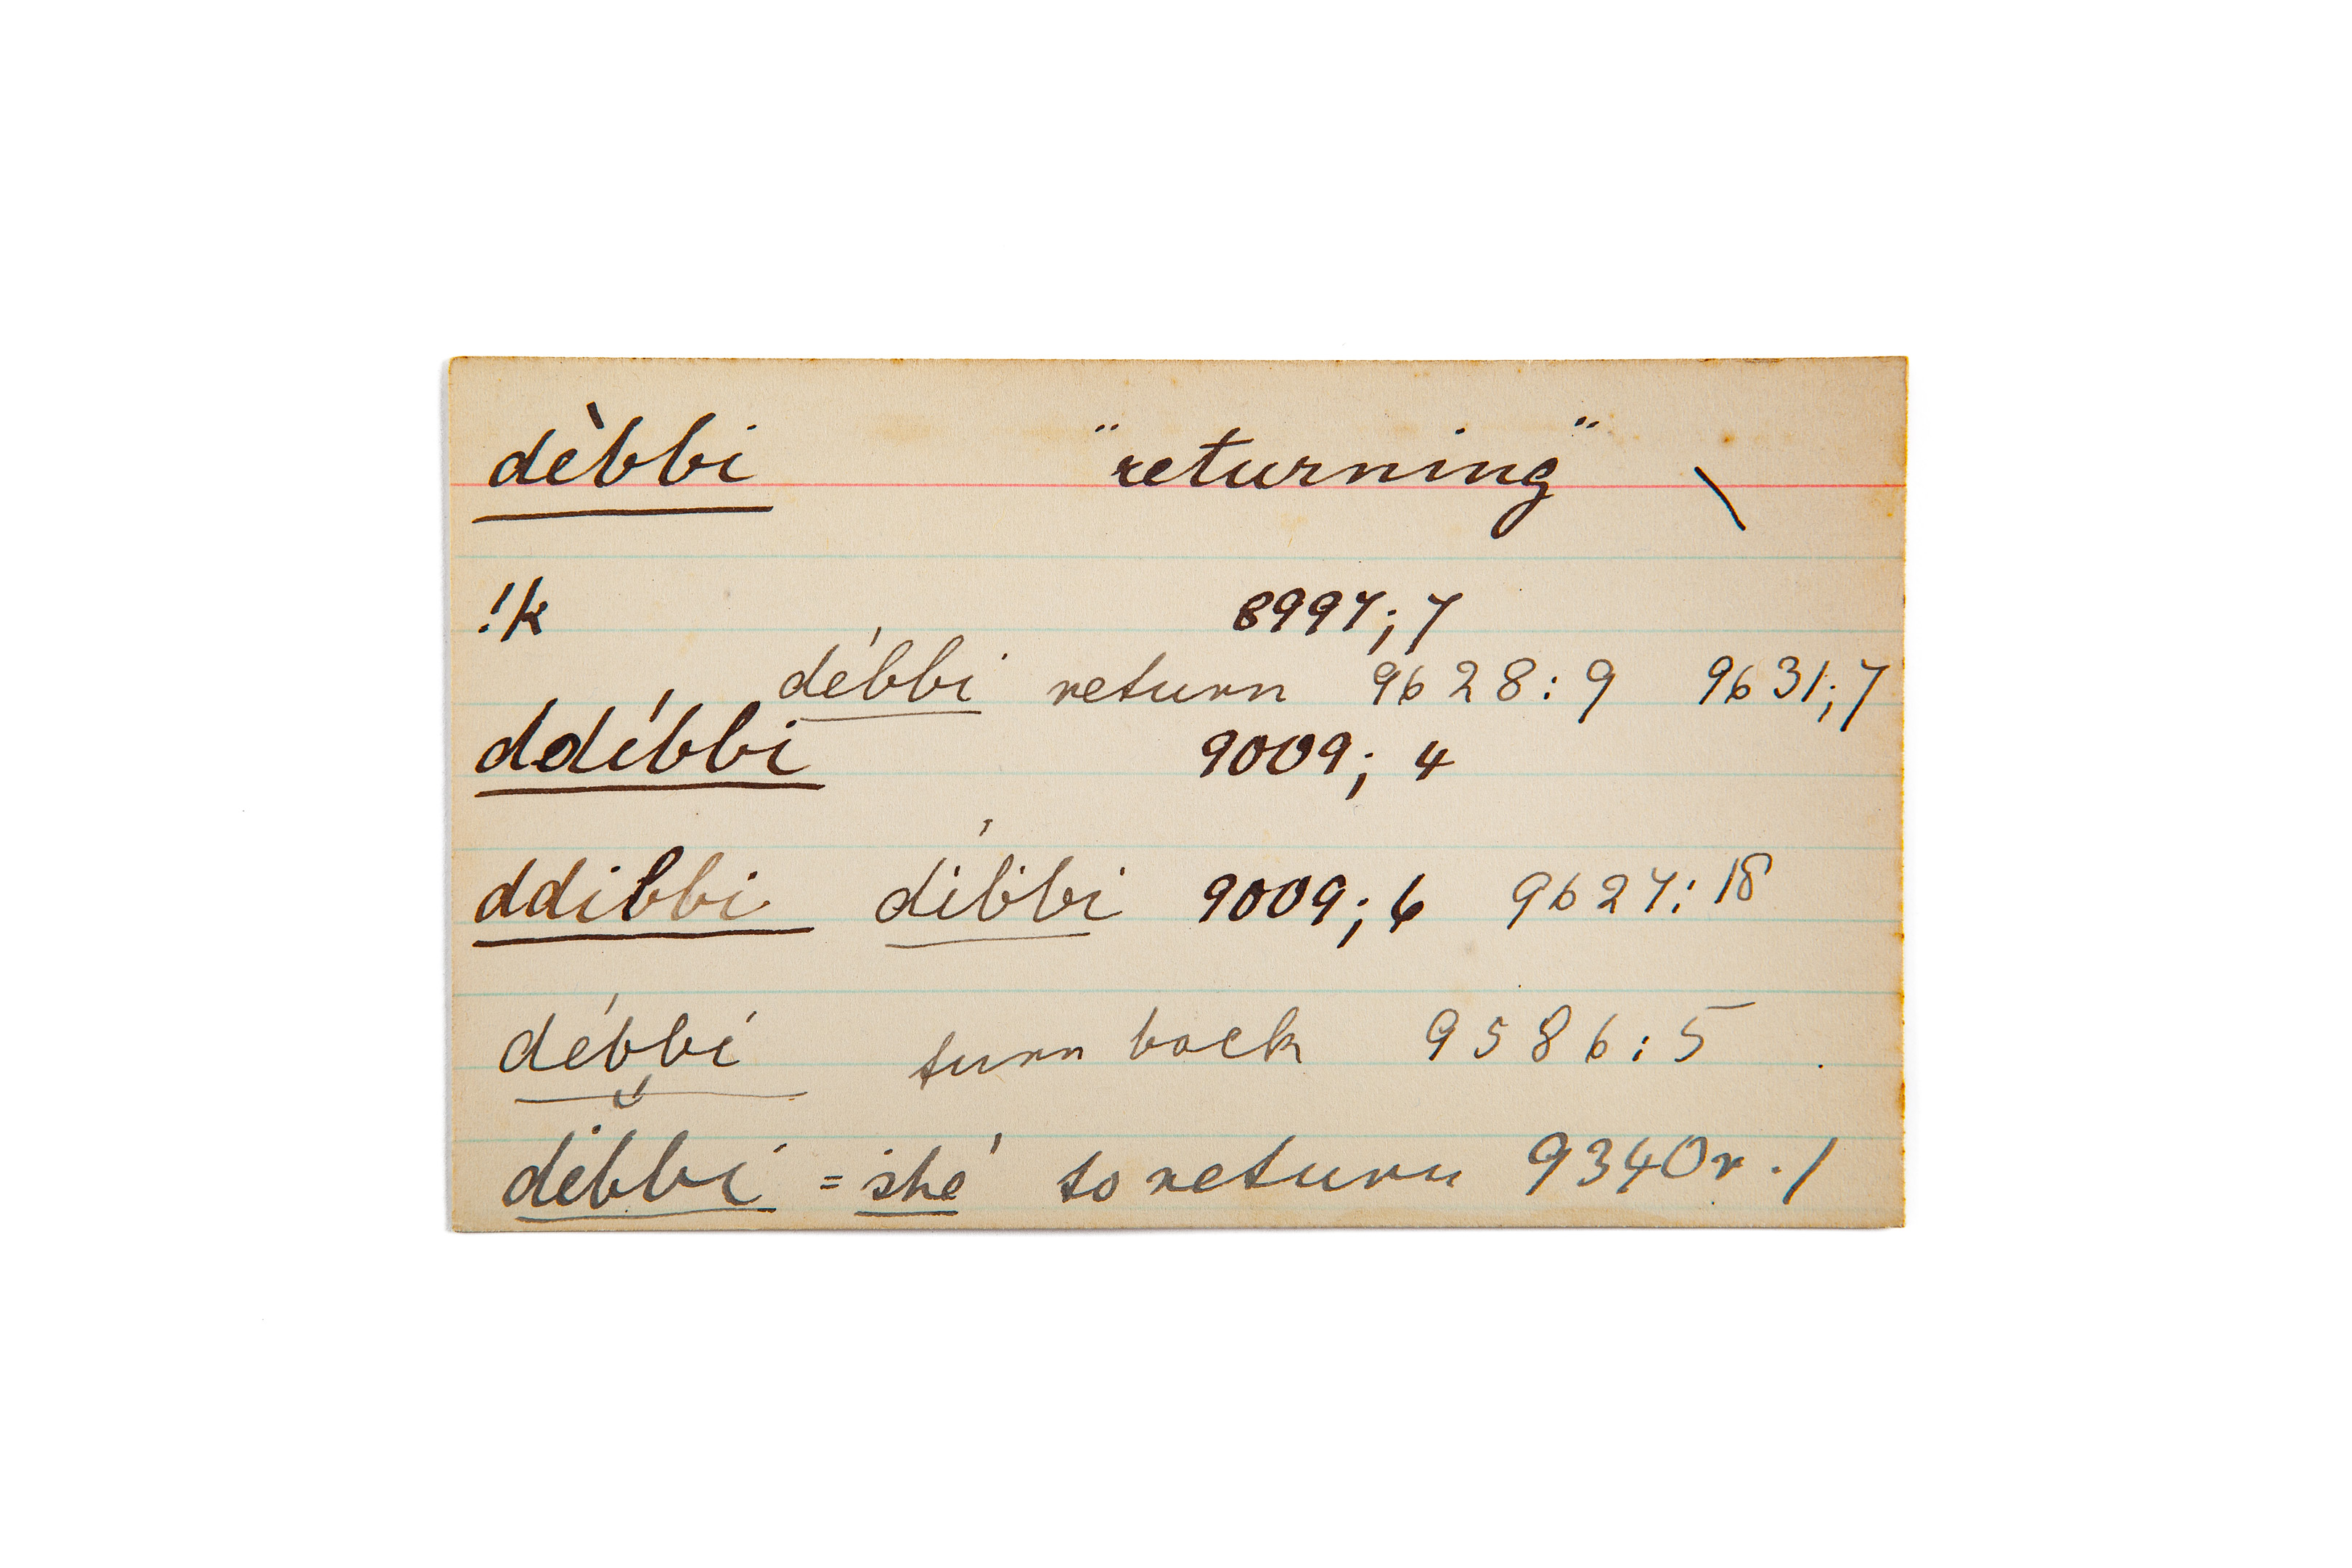 dèbbi "returning" \
!k 8997; 7
débbi return 9628:9 9631;7
ddébbi 9009; 4
ddibbi díbbi 9009; 6 9627:18
débbí turn back 9586:5
debbi = shé to return 9340r.1